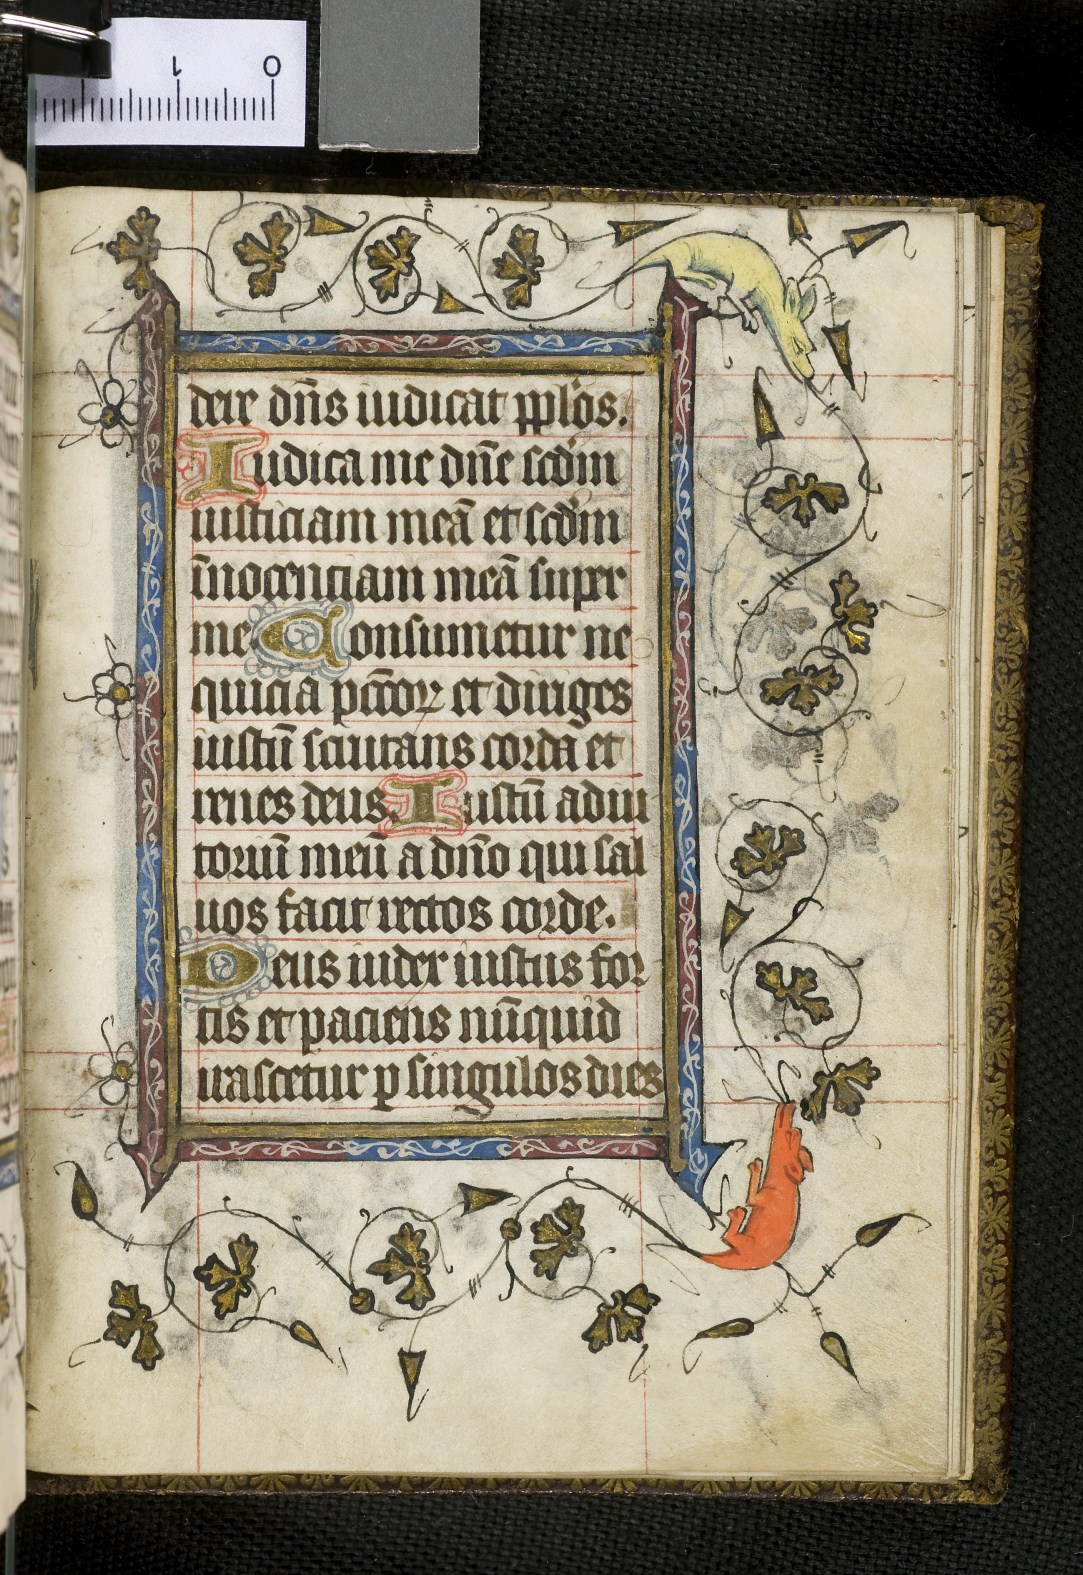 1 0
dete dn̄s iudicat pplōs.
Iudica me dn̄e scd̄m
iusticiam meā et scd̄m
īnocenciam meā super
me Consumetur ne
quicia pc̄torꝝ et diriges
iustū scrutans corda et
renes deus. Iustū adiu
toriū meū a dn̄o qui sal
uos facit rectos corde.
Deus iudex iustus for
tis et paciens nūquid
irascetur ꝑ singulos dies